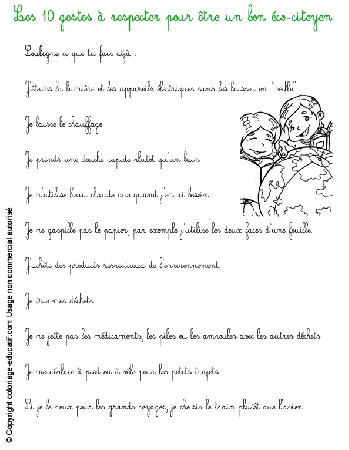 Les 10 gestes à respecter pour être un bon éco-citoyen
Souligne ce que tu fais déjà :
J'éteins la lumière et les appareils électriques sans les laisser en "veille"
Je baisse le chauffage
Je prends une douche rapide plutôt qu'un bain
Je n'utilise l'eau chaude que quand j'en ai besoin.
Je ne gaspille pas le papier, par exemple j'utilise les deux faces d'une feuille.
J'achète des produits respectueux de l'environnement.
Je trie mes déchets
Je ne jette pas les médicaments, les piles ou les ampoules avec les autres déchets
Je me déplace à pied ou à vélo pour les petits trajets
Si je le peux pour les grands voyages, je choisis le train plutôt que l'avion.
© Copyright coloriage-educatif.com Usage non commercial autorisé